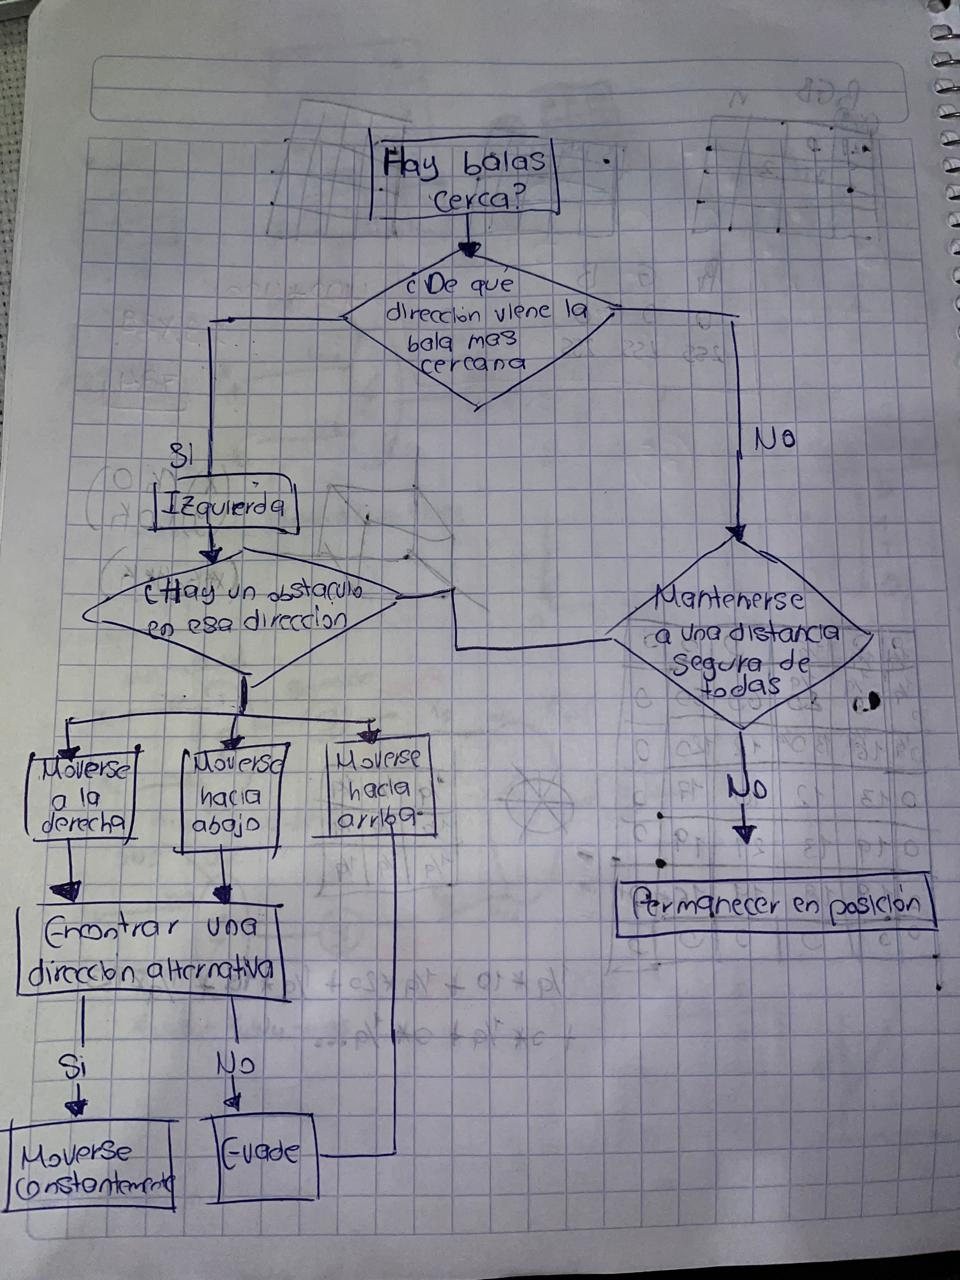 Hay balas
cerca?
¿De qué
dirección viene la
bala mas
cercana
Si
NO
Izquierda
¿Hay un obstaculo
en esa direccion
Mantenerse
a una distancia
segura de
todas
Moverse
a la
derecha
Moverse
hacia
abajo
Moverse
hacia
arriba
NO
Permanecer en posición
Encontrar una
dirección alternativa
Si
No
Moverse
constantemente
Evade